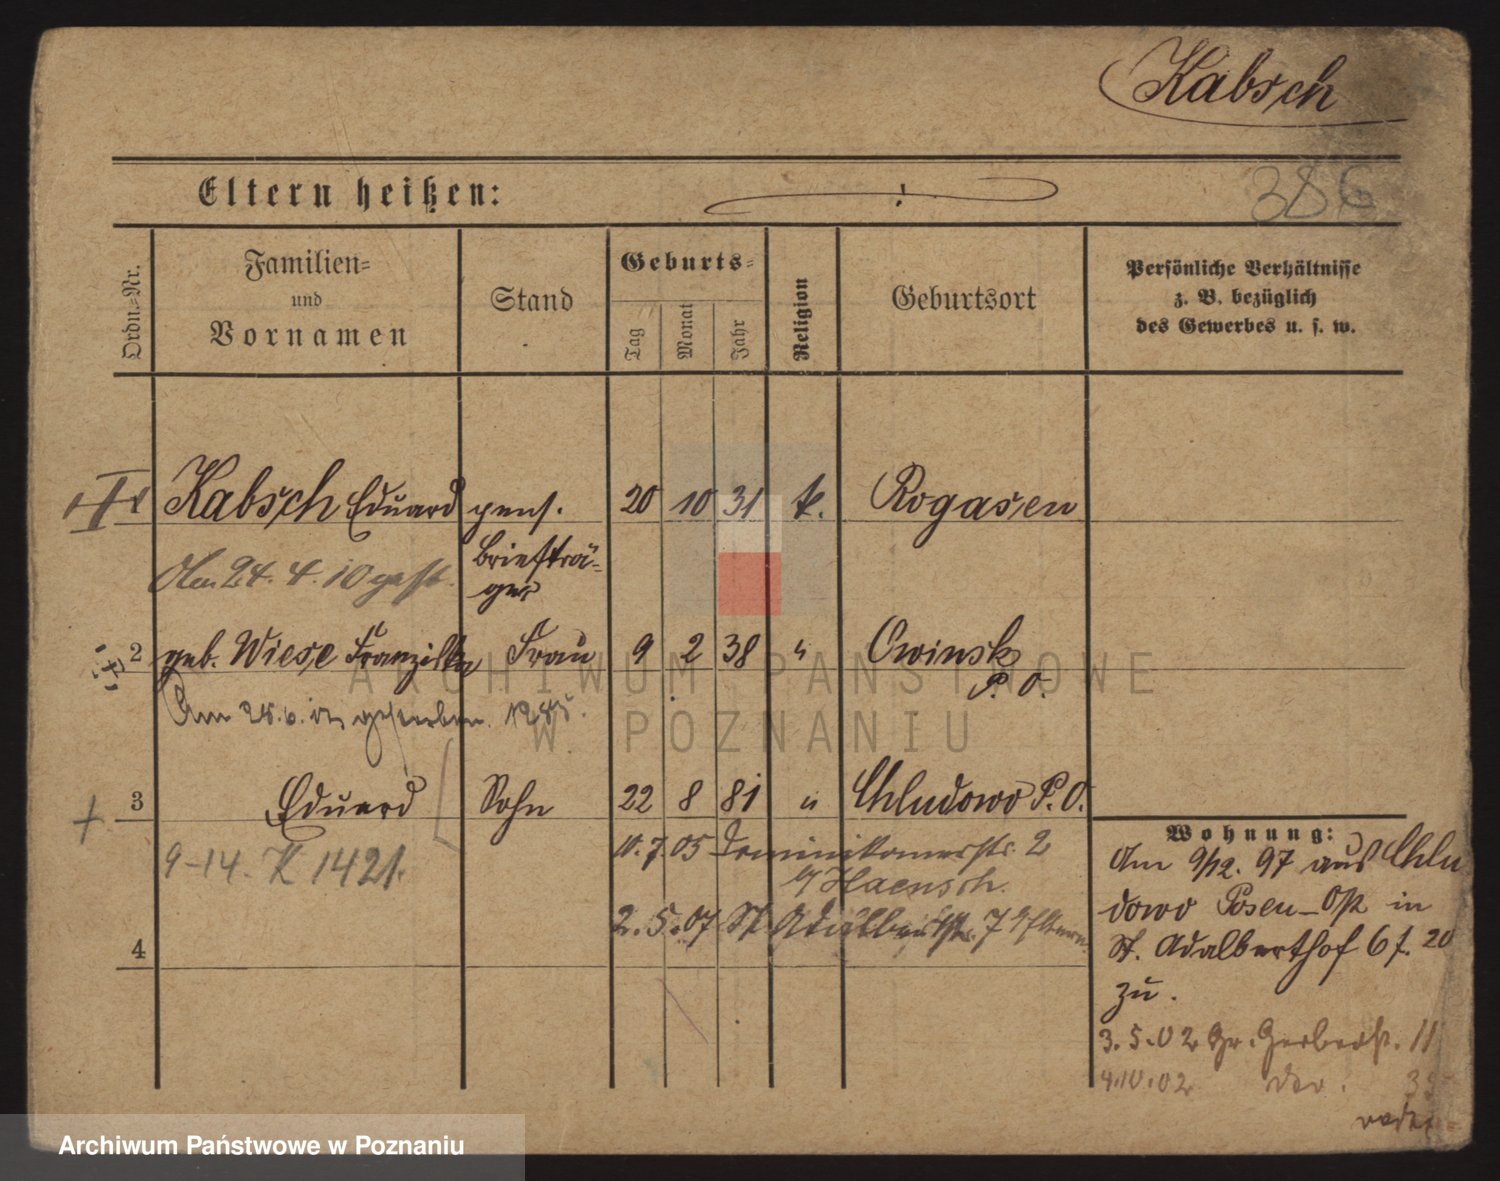 Kabsch
386
Eltern heißen:
Ordn.-Nr.
Familien-
und
Vornamen
Stand
Geburts-
Tag
Monat
Jahr
Religion
Geburtsort
Persönliche Verhältnisse
z. B. bezüglich
des Gewerbes u. s. w.
Kabsch Eduard pens. 20 10 31 k. Rogasen
Briefträ-
ger
Am 24. 4. 10 gest.
2 geb. Wiese Franziska Frau 9 2 38 " Owinsk
P. O.
Am gestorben.
3 Eduard Sohn 22 8 81 " Chludowo P. O.
9-14. K 1421.
10.7.05 Dominikanerstr. 2
b/ Haensch.
2.5.07 St Adalbertstr. 7 b/Eltern
4
Wohnung:
Am 9/12. 97 aus Chlu
dowo Posen-Ost in
St. Adalberthof 6 f. 20
zu.
3.5.02 Gr. Gerberst. 11
4.10.02
ARCHIWUM PAŃSTWOWE
W POZNANIU
Archiwum Państwowe w Poznaniu